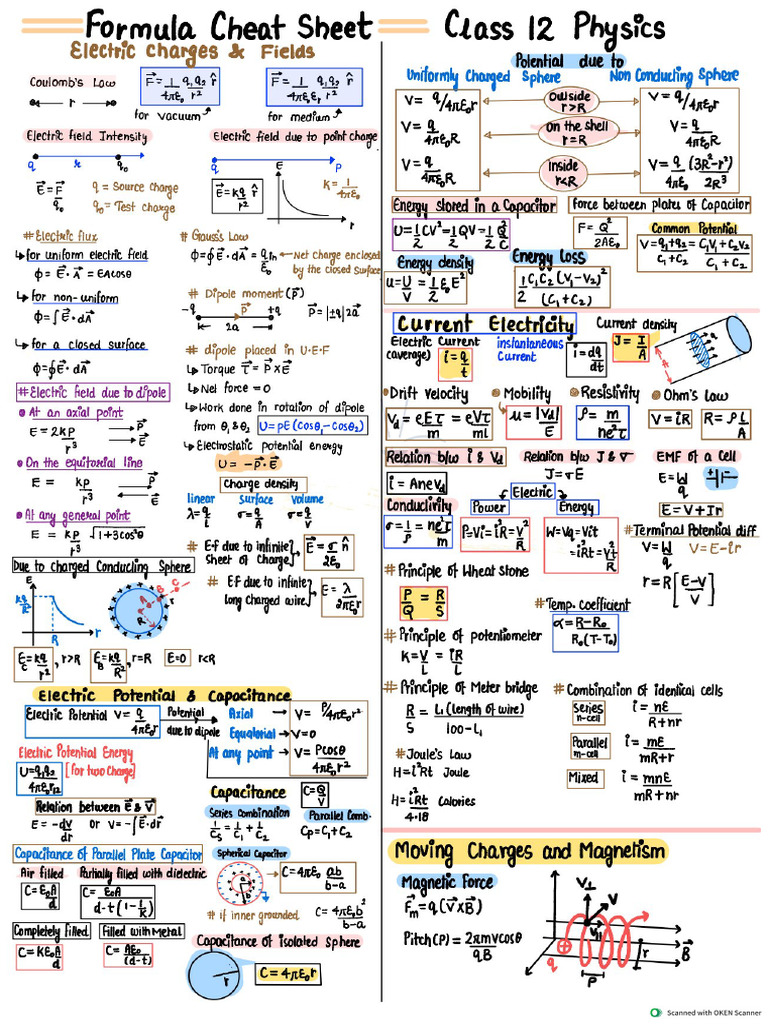 Formula Cheat Sheet
Class 12 Physics
Electric Charges & Fields
Coulomb's Law
r
F⃗ = 1/4πε₀ q₁q₂/r² r̂
for vacuum
F⃗ = 1/4πε₀εᵣ q₁q₂/r² r̂
for medium
Electric field Intensity
q r q₀
E⃗ = F⃗/q₀
q = Source charge
q₀ = Test charge
Electric field due to point charge
q P
E⃗ = Kq/r² r̂
E
r
K = 1/4πε₀
# Electric flux
↳ for uniform electric field
Φ = E⃗ · A⃗ = EAcosθ
↳ for non-uniform
Φ = ∫E⃗ · dA⃗
↳ for a closed surface
Φ = ∮E⃗ · dA⃗
# Gauss's Law
Φ = ∮E⃗ · dA⃗ = qin/ε₀
Net charge enclosed
by the closed Surface
# Dipole moment (P⃗)
-q P⃗ +q
2a
P⃗ = |±q|2a⃗
# dipole placed in U.E.F
↳ Torque τ⃗ = P⃗ × E⃗
↳ Net force = 0
↳ Work done in rotation of dipole
from θ₁ & θ₂ U = pE(Cosθ₁-Cosθ₂)
↳ Electrostatic potential energy
U = -P⃗·E⃗
# Electric field due to dipole
At an axial point
E = 2KP/r³
P⃗
E⃗
On the equitorial line
E = KP/r³
P⃗
E⃗
At any general point
E = KP/r³ √1+3cos²θ
Charge density
linear surface volume
λ = q/L σ = q/A σ = q/V
# E·f due to infinite
Sheet of Charge
E⃗ = σ/2ε₀ n̂
# E·f due to infinite
long charged wire
E = λ/2πε₀r
Due to charged Conducting Sphere
E
Kq/R²
R r
A B C
R
E_C = Kq/r², r>R
E_B = Kq/R², r=R
E=0 r<R
Electric Potential & Capacitance
Electric Potential V = q/4πε₀r
Potential
due to dipole
Axial → V = P/4πε₀r²
Equatorial → V=0
At any point → V = Pcosθ/4πε₀r²
Electric Potential Energy
U = q₁q₂/4πε₀r₁₂
[for two Charge]
Relation between E⃗ & V⃗
E = -dV/dr or V = -∫E⃗·dr⃗
Capacitance
C = Q/V
Series Combination
1/Cs = 1/C₁ + 1/C₂
Parallel Comb·
Cp = C₁ + C₂
Capacitance of Parallel Plate Capacitor
Air filled
C = ε₀A/d
Partially filled with dielectric
C = ε₀A/d-t(1-1/K)
Completely filled
C = Kε₀A/d
Filled with Metal
C = Aε₀/(d-t)
Spherical Capacitor
a
b
C = 4πε₀ ab/b-a
# if inner grounded
C = 4πε₀b²/b-a
Capacitance of isolated Sphere
r
C = 4πε₀r
Potential due to
Uniformly Charged Sphere
Non Conducting Sphere
V = q/4πε₀r
Outside r>R
V = q/4πε₀r
V = q/4πε₀R
On the shell r=R
V = q/4πε₀R
V = q/4πε₀R
Inside r<R
V = q/4πε₀ (3R²-r²)/2R³
Energy stored in a Capacitor
U = 1/2 CV² = 1/2 QV = 1/2 Q²/C
Force between plates of Capacitor
F = Q²/2Aε₀
Common Potential
V = q₁+q₂/C₁+C₂ = C₁V₁+C₂V₂/C₁+C₂
Energy density
u = U/V = 1/2 ε₀E²
Energy loss
1/2 C₁C₂(V₁-V₂)²/(C₁+C₂)
Current Electricity
Electric Current
(average)
i = q/t
instantaneous
Current
i = dq/dt
Current density
J = I/A
Drift Velocity
Vd = eEτ/m = eVτ/ml
Mobility
μ = |Vd|/E
Resistivity
ρ = m/ne²τ
Ohm's Law
V = iR R = ρL/A
Relation b/w i & Vd
i = AneVd
Relation b/w J & σ
J = σE
EMF of a Cell
E = W/q
+ -
E = V + Ir
Conductivity
σ = 1/ρ = ne²τ/m
Electric
Power
P = Vi = i²R = V²/R
Energy
W = Vq = Vit
= i²Rt = V²t/R
# Terminal Potential diff
V = W/q V = E-ir
r = R[E-V/V]
# Principle of Wheat Stone
P/Q = R/S
# Temp. Coefficient
α = R-R₀/R₀(T-T₀)
# Principle of potentiometer
K = V/L = iR/L
# Principle of Meter bridge
R/S = L₁(length of wire)/100-L₁
# Combination of identical cells
Series
n-cell
i = nE/R+nr
Parallel
m-cell
i = mE/mR+r
Mixed
i = mnE/mR+nr
# Joule's Law
H = i²Rt Joule
H = i²Rt/4·18 Calories
Moving Charges and Magnetism
Magnetic Force
F⃗m = q(V⃗×B⃗)
Pitch(P) = 2πmvcosθ/qB
V⊥
V
V∥
q
P
r
B⃗
Scanned with OKEN Scanner